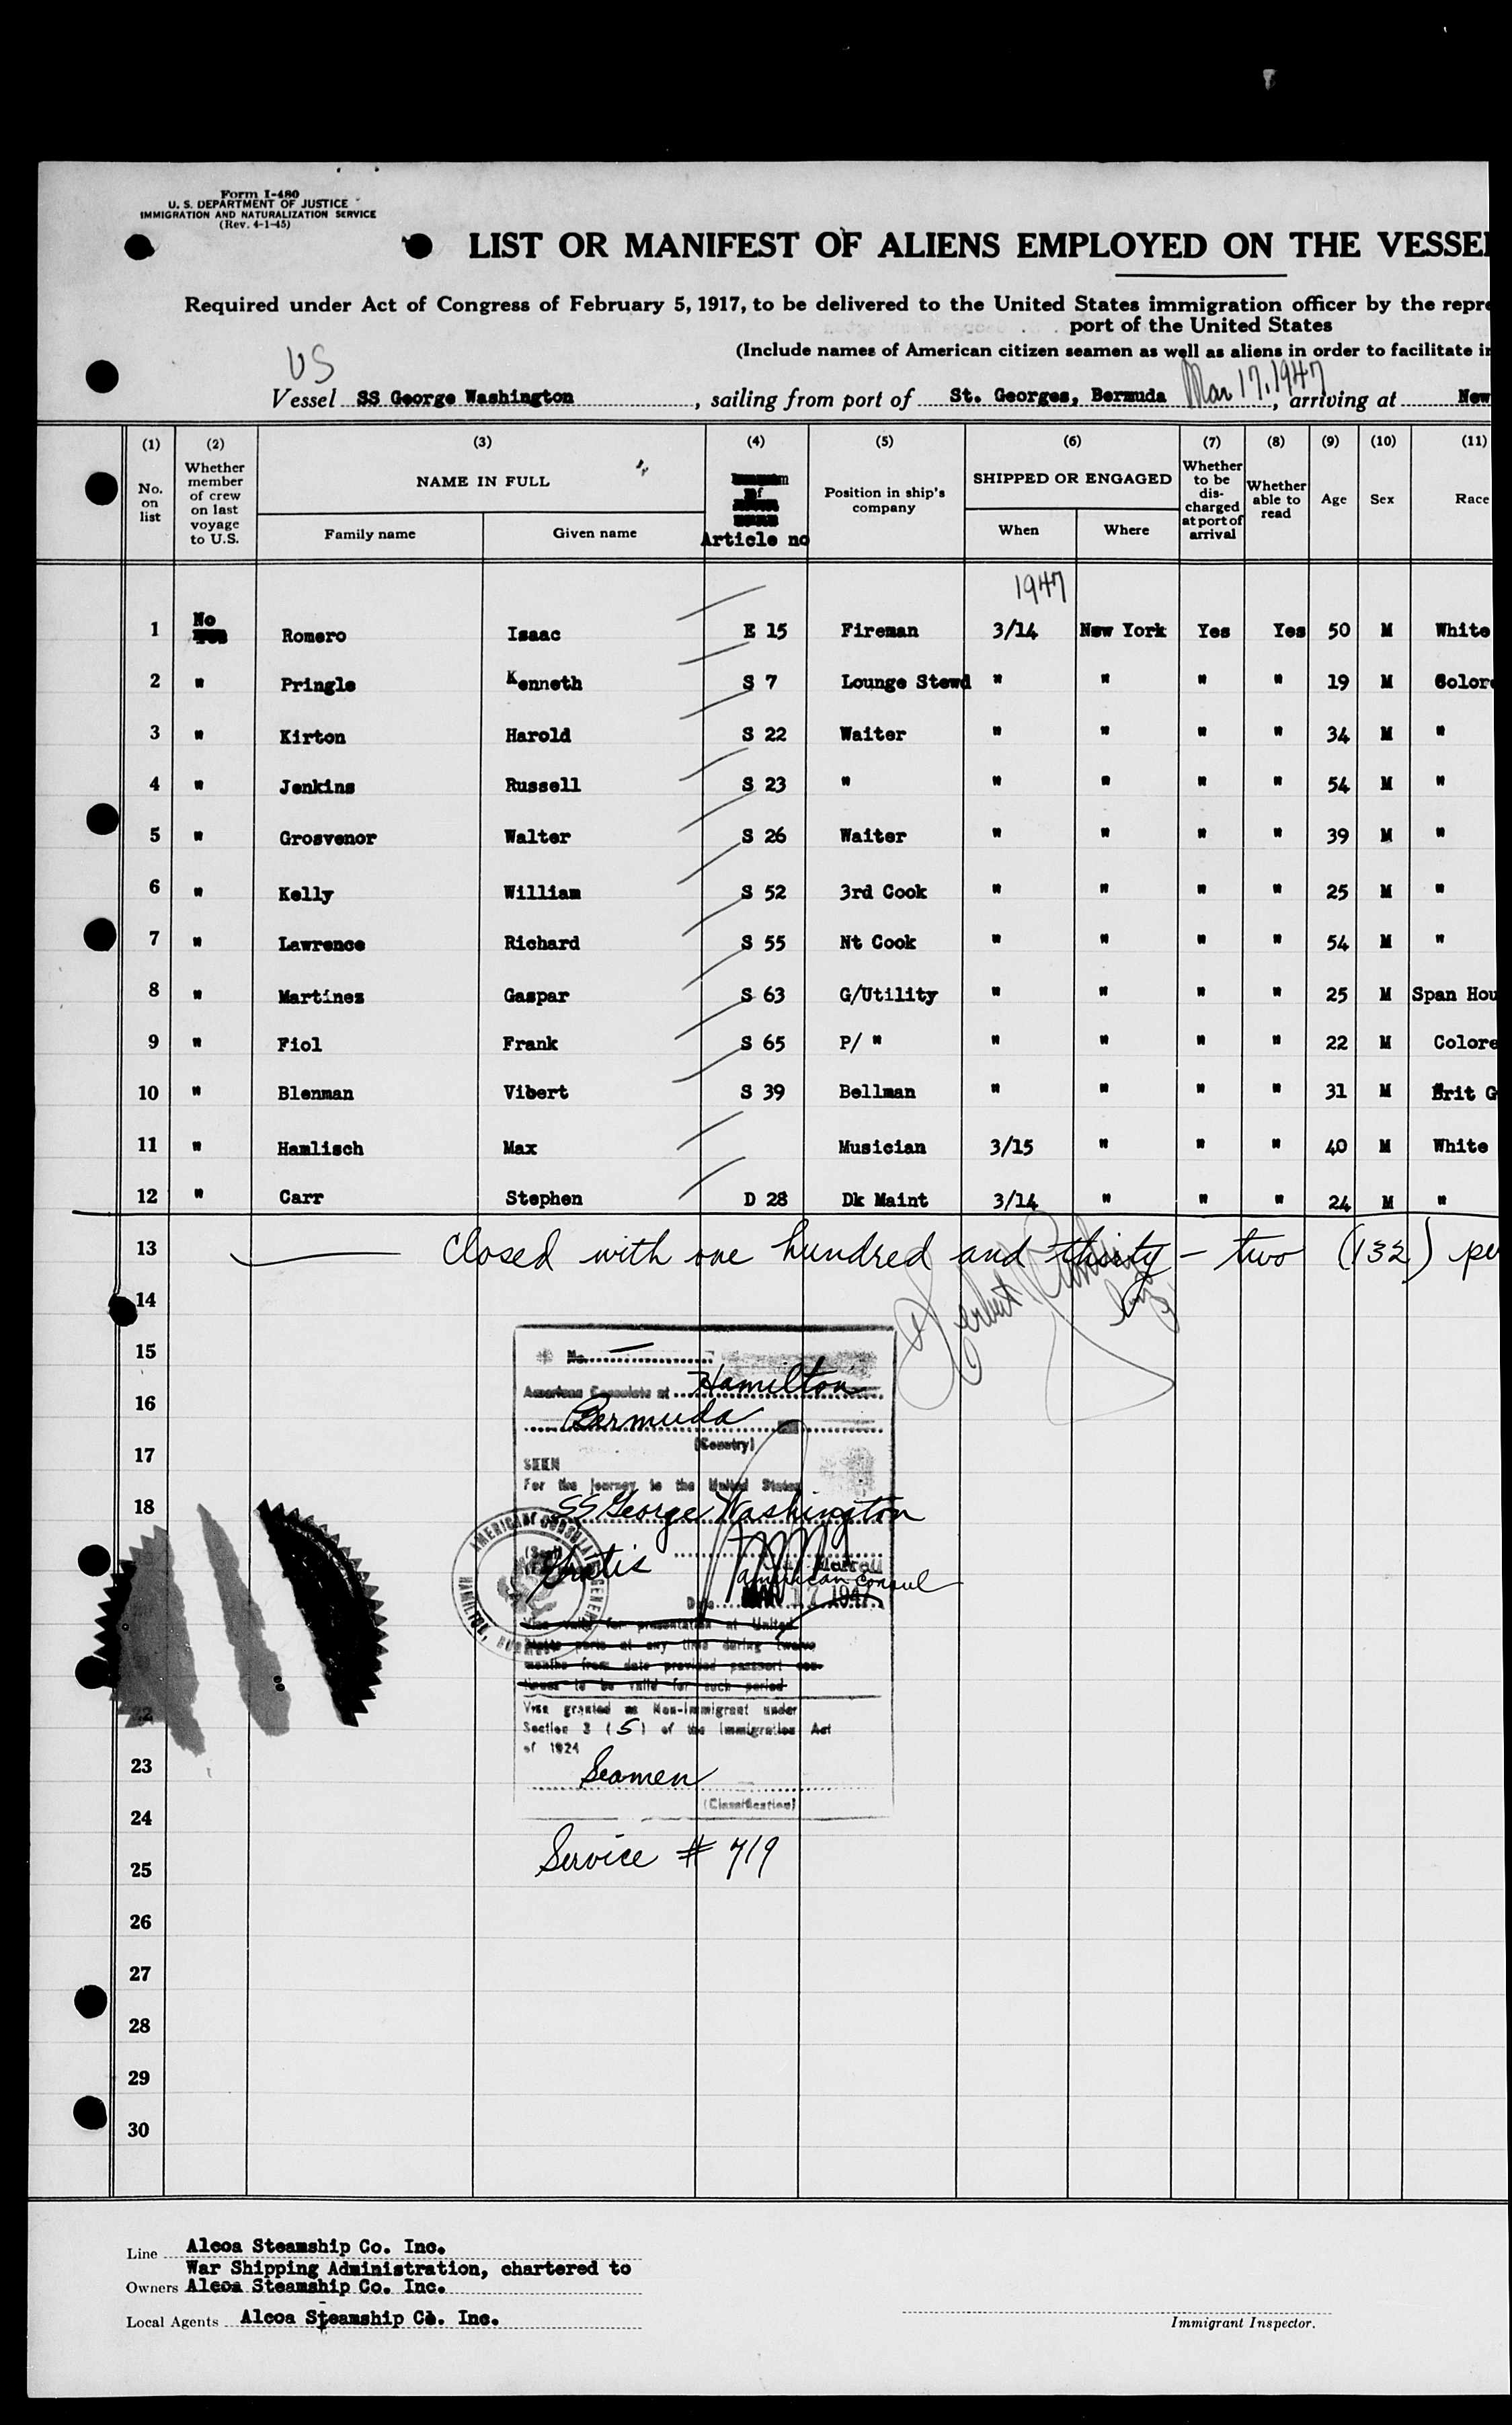 Form I-480
U. S. DEPARTMENT OF JUSTICE
IMMIGRATION AND NATURALIZATION SERVICE
(Rev. 4-1-45)
LIST OR MANIFEST OF ALIENS EMPLOYED ON THE VESSE
Required under Act of Congress of February 5, 1917, to be delivered to the United States immigration officer by the repre
port of the United States
(Include names of American citizen seamen as well as aliens in order to facilitate i
US
Vessel SS George Washington , sailing from port of St. Georges, Bermuda Mar 17, 1947 , arriving at New
(1) (2) (3) (4) (5) (6) (7) (8) (9) (10) (11)
No. on list Whether member of crew on last voyage to U.S. NAME IN FULL Family name Given name Article no Position in ship's company SHIPPED OR ENGAGED When Where Whether to be discharged at port of arrival Whether able to read Age Sex Race
1947
1 No Romero Isaac E 15 Fireman 3/14 New York Yes Yes 50 M White
2 " Pringle Kenneth S 7 Lounge Stewd " " " " 19 M Color
3 " Kirton Harold S 22 Waiter " " " " 34 M "
4 " Jenkins Russell S 23 " " " " " 54 M "
5 " Grosvenor Walter S 26 Waiter " " " " 39 M "
6 " Kelly William S 52 3rd Cook " " " " 25 M "
7 " Lawrence Richard S 55 Nt Cook " " " " 54 M "
8 " Martinez Gaspar S 63 G/Utility " " " " 25 M Span Hou
9 " Fiol Frank S 65 P/ " " " " " 22 M Colore
10 " Blenman Vibert S 39 Bellman " " " " 31 M Brit G
11 " Hamlisch Max Musician 3/15 " " " 40 M White
12 " Carr Stephen D 28 Dk Maint 3/14 " " " 24 M "
13 Closed with one hundred and thirty-two (132) pe
14
15
16
17
18
22
23
24
25
26
27
28
29
30
No.
American Consulate at Hamilton
Bermuda
(Country)
SEEN
For the journey to the United States
SS George Washington
(Seal)
Gratis
American Consul
Date MAR 1947
AMERICAN CONSULATE GENERAL
HAMILTON, BERMUDA
Visa valid for presentation at United
States ports at any time during twelve
months from date provided passport con-
tinues to be valid for such period
Visa granted as Non-Immigrant under
Section 3 (5) of the Immigration Act
of 1924
Seamen
(Classification)
Service # 719
Line Alcoa Steamship Co. Inc.
War Shipping Administration, chartered to
Owners Alcoa Steamship Co. Inc.
Local Agents Alcoa Steamship Co. Inc.
Immigrant Inspector.